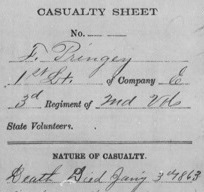 CASUALTY SHEET
No.
F. Pringey
1st Lt. of Company E
3d Regiment of Md Vols
State Volunteers.
NATURE OF CASUALTY.
Death Died Jany 3d 1863